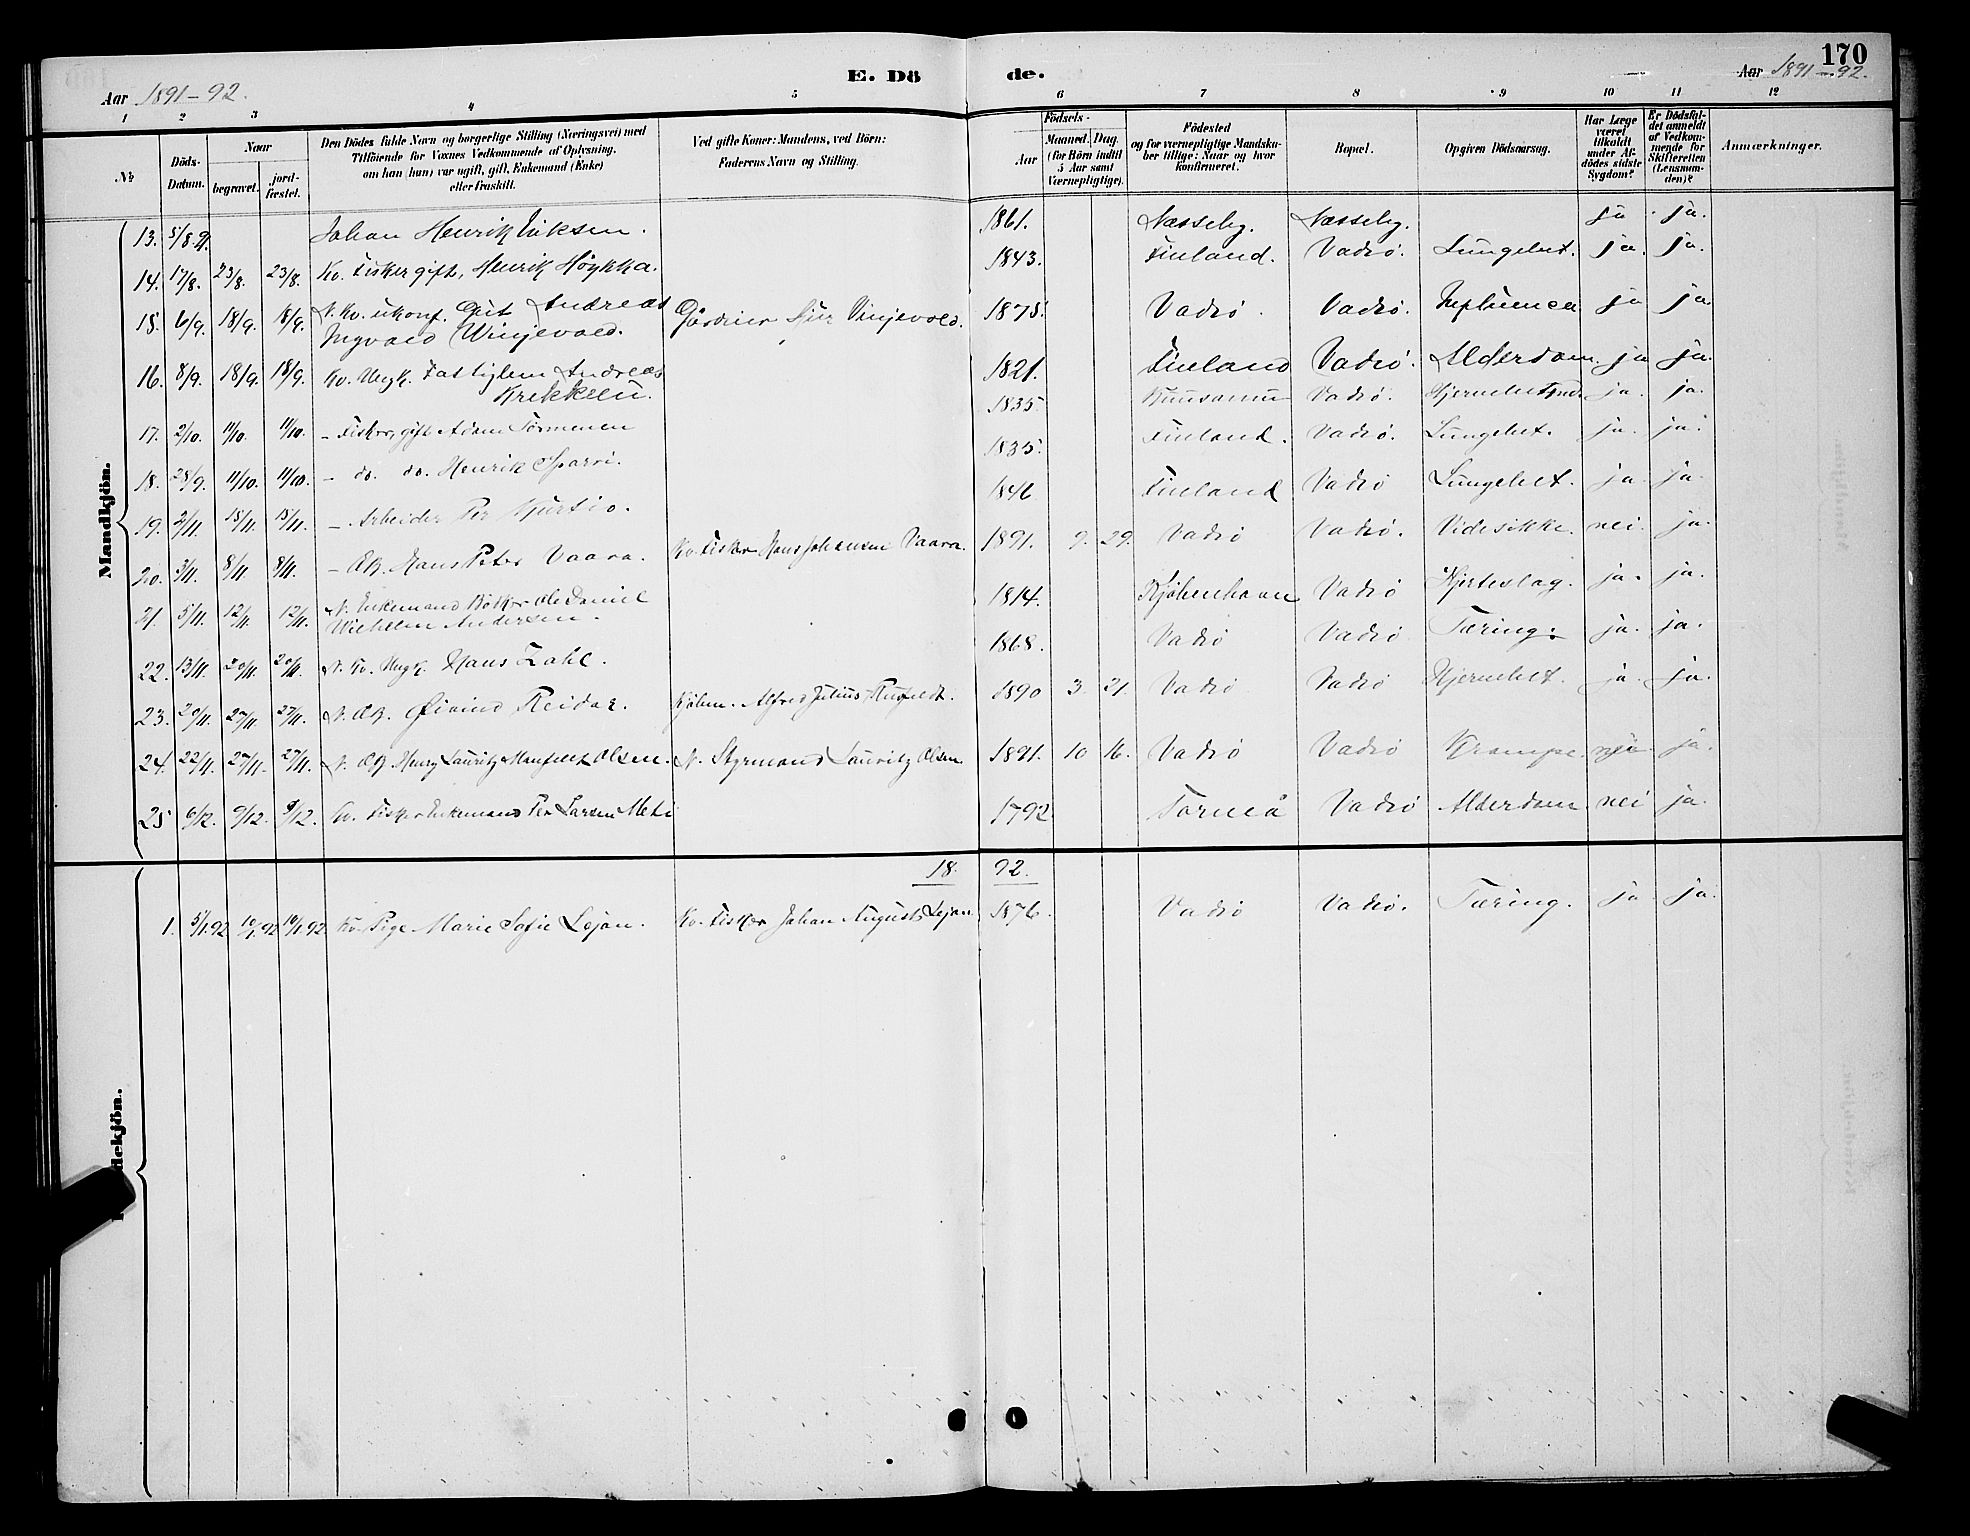 E. Dö de.
170
Aar 1891-92.
Aar 1891-92.
1 2 3 4 5 6 7 8 9 10 11 12
№
Döds-Datum.
Naar
begravet.
jord-fæstet.
Den Dödes fulde Navn og borgerlige Stilling (Næringsvei) med
Tilföiende for Voxnes Vedkommende af Oplysning,
om han (hun) var ugift, gift, Enkemand (Enke)
eller fraskilt.
Ved gifte Koner: Mandens, ved Börn:
Faderens Navn og Stilling.
Födsels-
Aar
Maaned. Dag.
(for Börn indtil
5 Aar samt
Værnepligtige).
Födested
og for værnepligtige Mandska-
ber tillige: Naar og hvor
konfirmeret.
Bopæl.
Opgiven Dödsaarsag.
Har Læge
været
tilkaldt
under Af-
dödes sidste
Sygdom?
Er Dödsfal-
det anmeldt
af Vedkom-
mende for
Skifteretten
(Lensman-
den)?
Anmærkninger.
Mandkjön.
13. 5/8. Johan Henrik 1861. Næsseby. Næsseby. ja ja.
14. 17/8. 23/8. 23/8. Kv. Fisker gift, Henrik Höykka. 1843. Finland. Vadsö. Lungebet. ja. ja.
15. 6/9. 18/9. 18/9. N. Kv. ukonf. Gut Andreas
Ingvald Winjevold. Gårdeier Sjur Vinjevold. 1875. Vadsö. Vadsö. Influenca ja ja.
16. 8/9. 18/9. 18/9. Kv. Ungk. Fattiglem Andreas
Krikkeu. 1821. Finland Vadsö. Alderdom. ja ja.
17. 2/10. 11/10. 11/10. - Fisker, gift Adam Tormenen 1835. Kuusamu Vadsö. ja. ja.
18. 28/9. 11/10. 11/10. - do. do. Henrik Sparri. 1835. Finland. Vadsö. Lungebet. ja. ja.
19. 2/11. 15/11. 15/11. - Arbeider Per 1846 Finland Vadsö Lungebet. ja. ja.
20. 3/11. 8/11 8/11. - ÆB. Hans Peter Vaara. Kv. Fisker Hans Johansen Vaara. 1891. 9. 29. Vadsö Vadsö. nei ja.
21. 5/11. 12/11. 12/11. N. Enkemand Ole Daniel
Wilhelm Andersen. 1814. Kjöbenhavn Vadsö Hjerteslag. ja. ja.
22. 13/11. 20/11. 20/11. N. Kv. Ungk. Hans Zahl. 1868. Vadsö Vadsö Tæring. ja. ja.
23. 20/11. 27/11. 27/11. N. ÆB. Öivind Reidar. Kjöbm. Alfred Julius 1890 3. 21. Vadsö Vadsö Hjernebet. ja. ja.
24. 22/11. 27/11. 27/11. N. ÆB. Henry Lauritz Olsen. N. Styrmand Lauritz Olsen 1891. 10 16. Vadsö Vadsö Krampe. nei ja.
25 6/12. 9/12. 9/12. Kv. Fisker Enkemand Per Larsen 1792 Torneå Vadsö Alderdom nei ja.
18 92.
1. 5/1.92 10/1.92 10/1.92 Kv. Pige Marie Sofie Lejon. Kv. Fisker Johan August Lejon. 1876. Vadsö Vadsö. Tæring. ja ja.